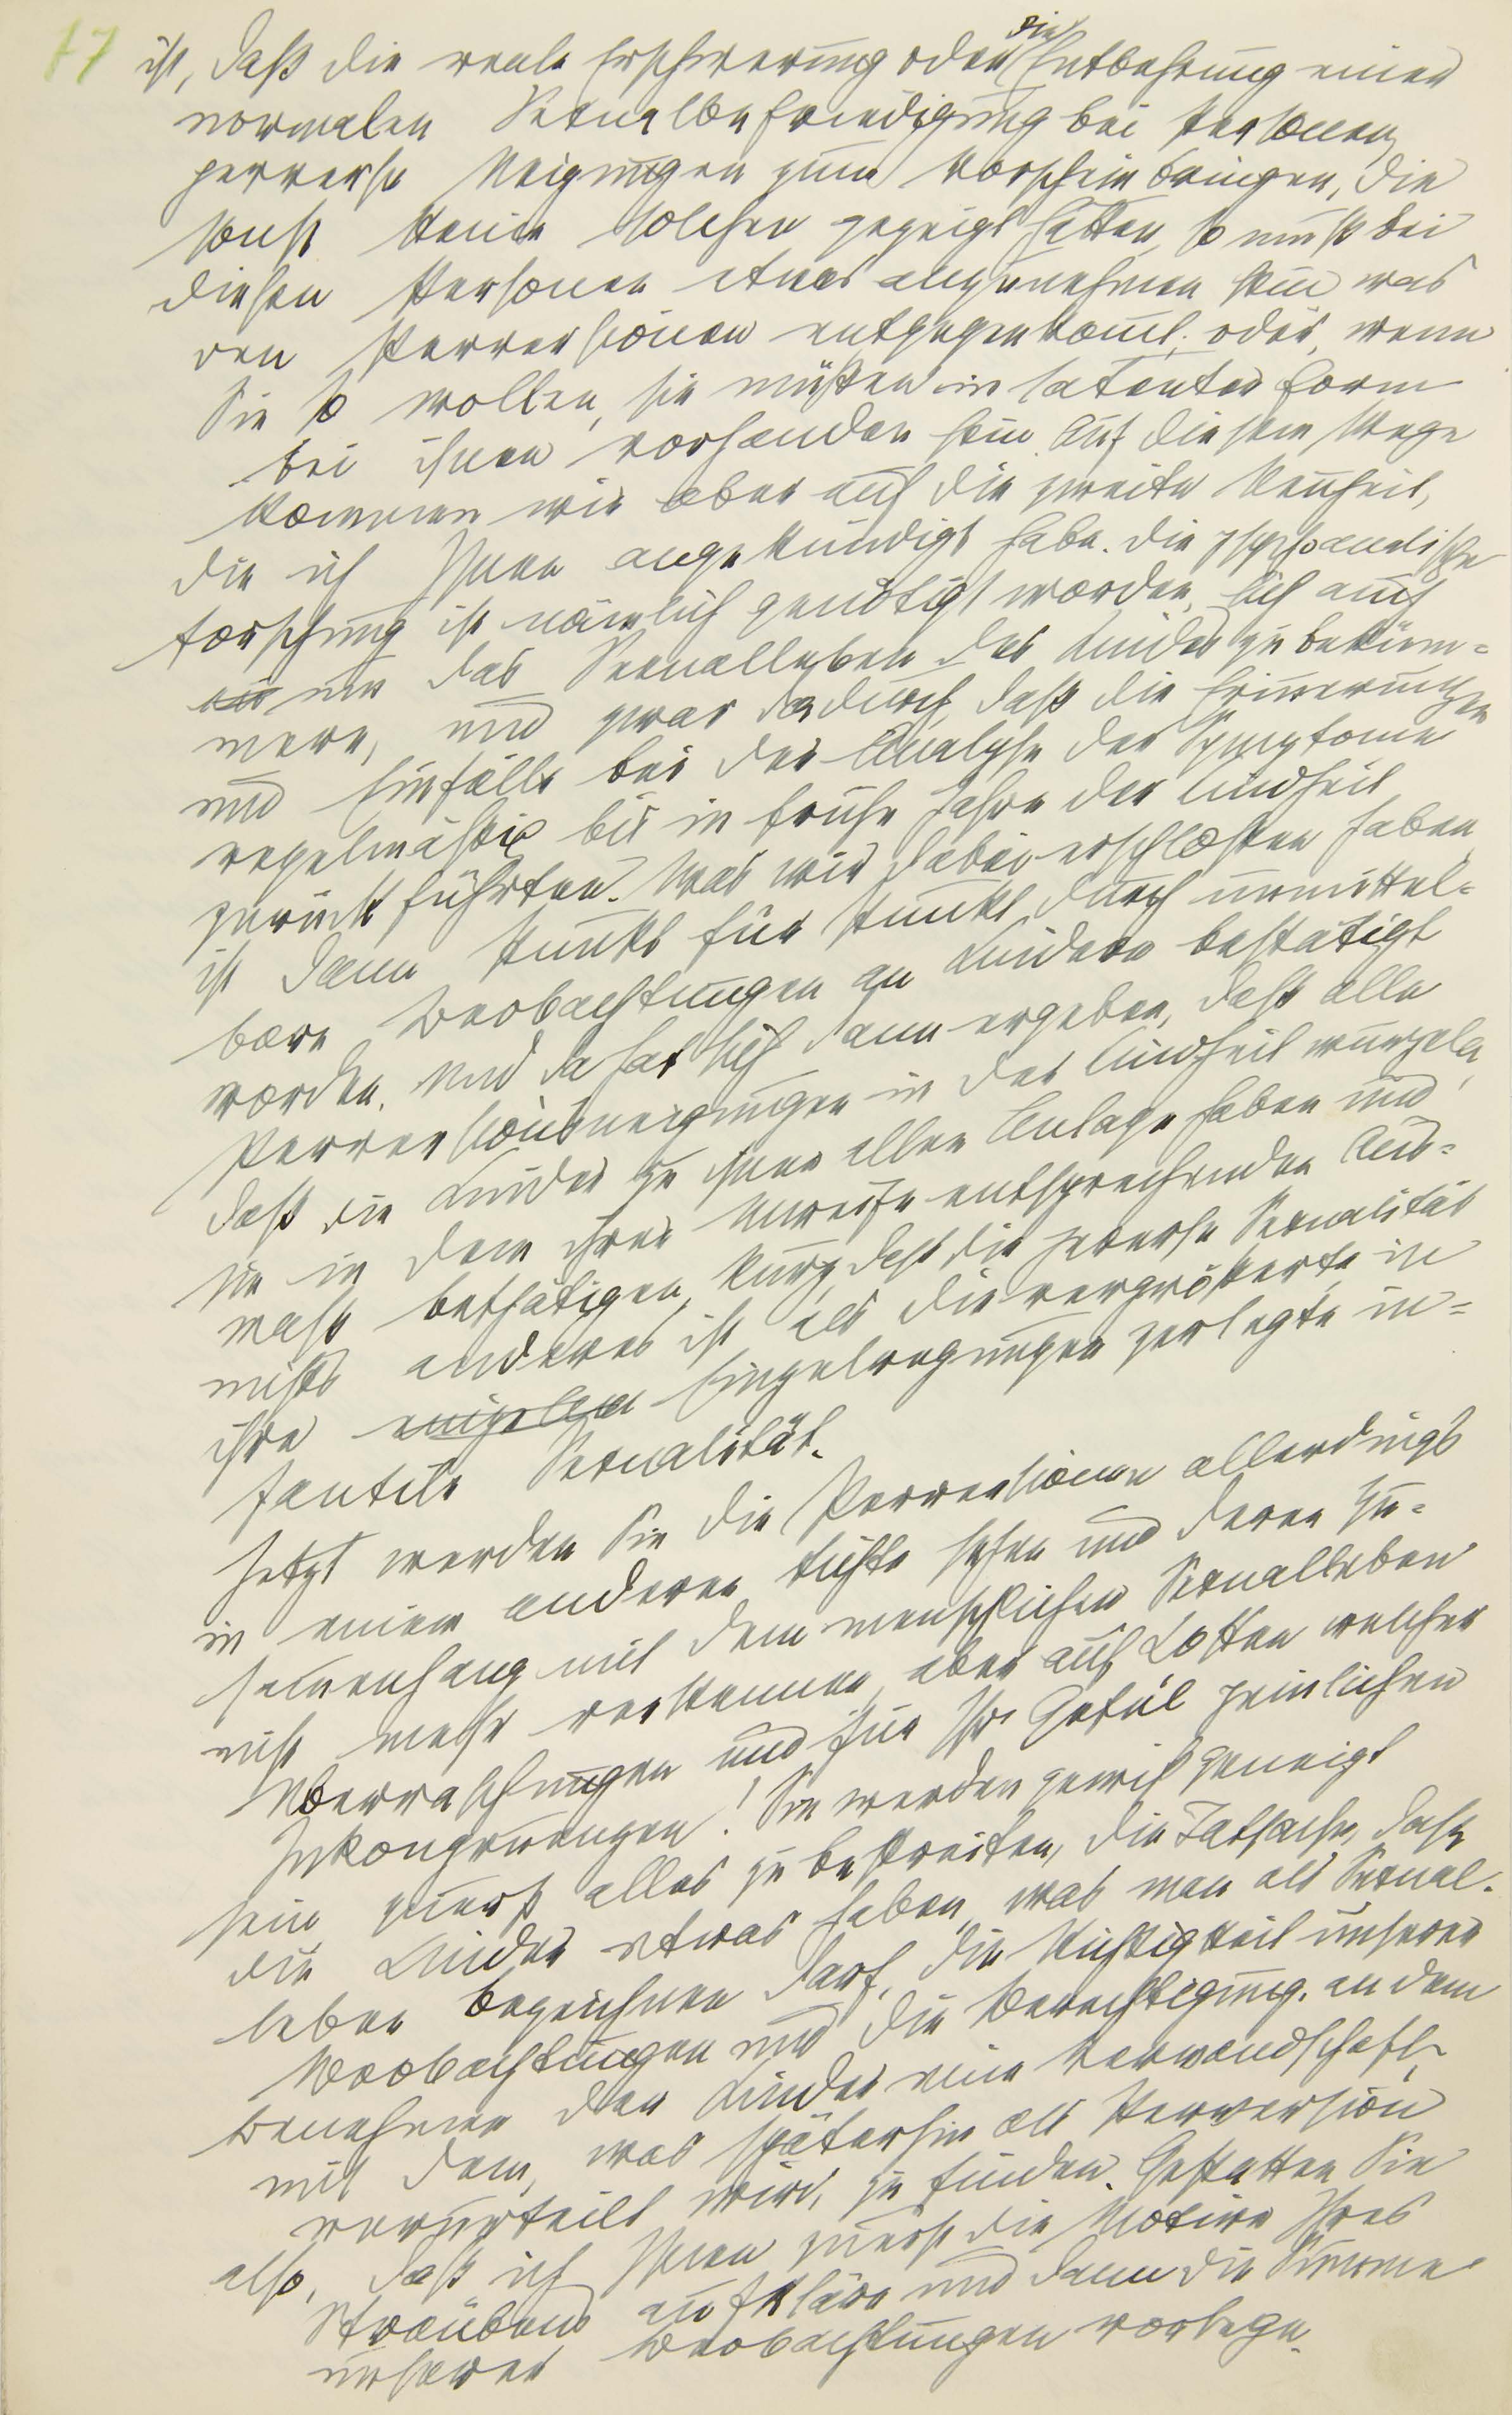 17
ist, daß die reale Erschwerung oder die Entbehrung einer
normalen Sexualbefriedigung bei Personen
perverse Neigungen zum Vorschein bringen, die
sonst keine solchen gezeigt hätten, so muß bei
diesen Personen etwas anzunehmen sein was
den Perversionen entgegenkommt; oder, wenn
Sie so wollen, sie müßen in latenter Form
bei ihnen vorhanden sein. Auf diesem Wege
kommen wir aber auf die zweite Neuheit,
die ich Ihnen angekündigt habe. Die psychoanalitische
Forschung ist nämlich genötigt worden, sich auch
um das Sexualleben des Kindes zu beküm=
mern, und zwar dadurch, daß die Erinnerungen
und Einfälle bei der Analyse der Symptome
regelmäßig bis in frühe Jahre der Kindheit
zurückführten. Was wir dabei erschloßen haben
ist dann Punkt für Punkt durch unmittel=
bare Beobachtungen an Kindern bestätigt
worden. Und da hat sich dann ergeben, daß alle
Perversionsneigungen in der Kindheit wurzeln,
daß die Kinder zu ihnen allen Anlage haben und
sie in dem ihrer Unreife entsprechenden Aus=
maß bethätigen, kurz, daß die perverse Sexualität
nichts anderes ist als die vergrößerte, in
ihre einzelnen Einzelregungen zerlegte in=
fantile Sexualität.
Jetzt werden Sie die Perversionen allerdings
in einem anderen Lichte sehen und deren Zu=
samenhang mit dem menschlichen Sexualleben
nicht mehr verkennen, aber auf Kosten welcher
Überraschungen und für Ihr Gefül peinlichen
Inkongruenzen! Sie werden gewiß geneigt
sein, zuerst alles zu bestreiten, die Tatsache, daß
die Kinder etwas haben, was man als Sexual-
leben bezeichnen darf, die Richtigkeit unserer
Beobachtungen und die Berechtigung, an dem
Benehmen der Kinder eine Verwandschaft
mit dem, was späterhin als Perversion
verurteilt wird, zu finden. Gestatten Sie
also, daß ich Ihnen zuerst die Motive Ihres
Sträubens aufkläre und dann die Summe
unserer Beobachtungen vorlege.